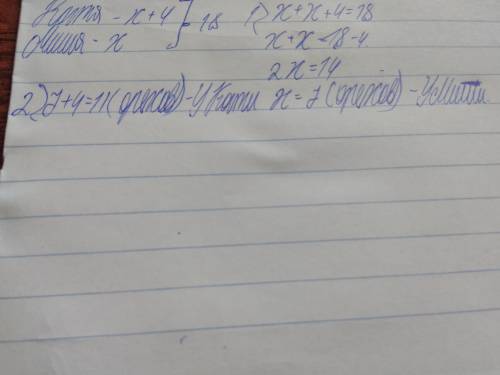 Катя - x+4 } 18
Миша - x
1) x+x+4=18
x+x=18-4
2x=14
x=7 (орехов) - У Миши
2) 7+4=11 (орехов) - У Кати